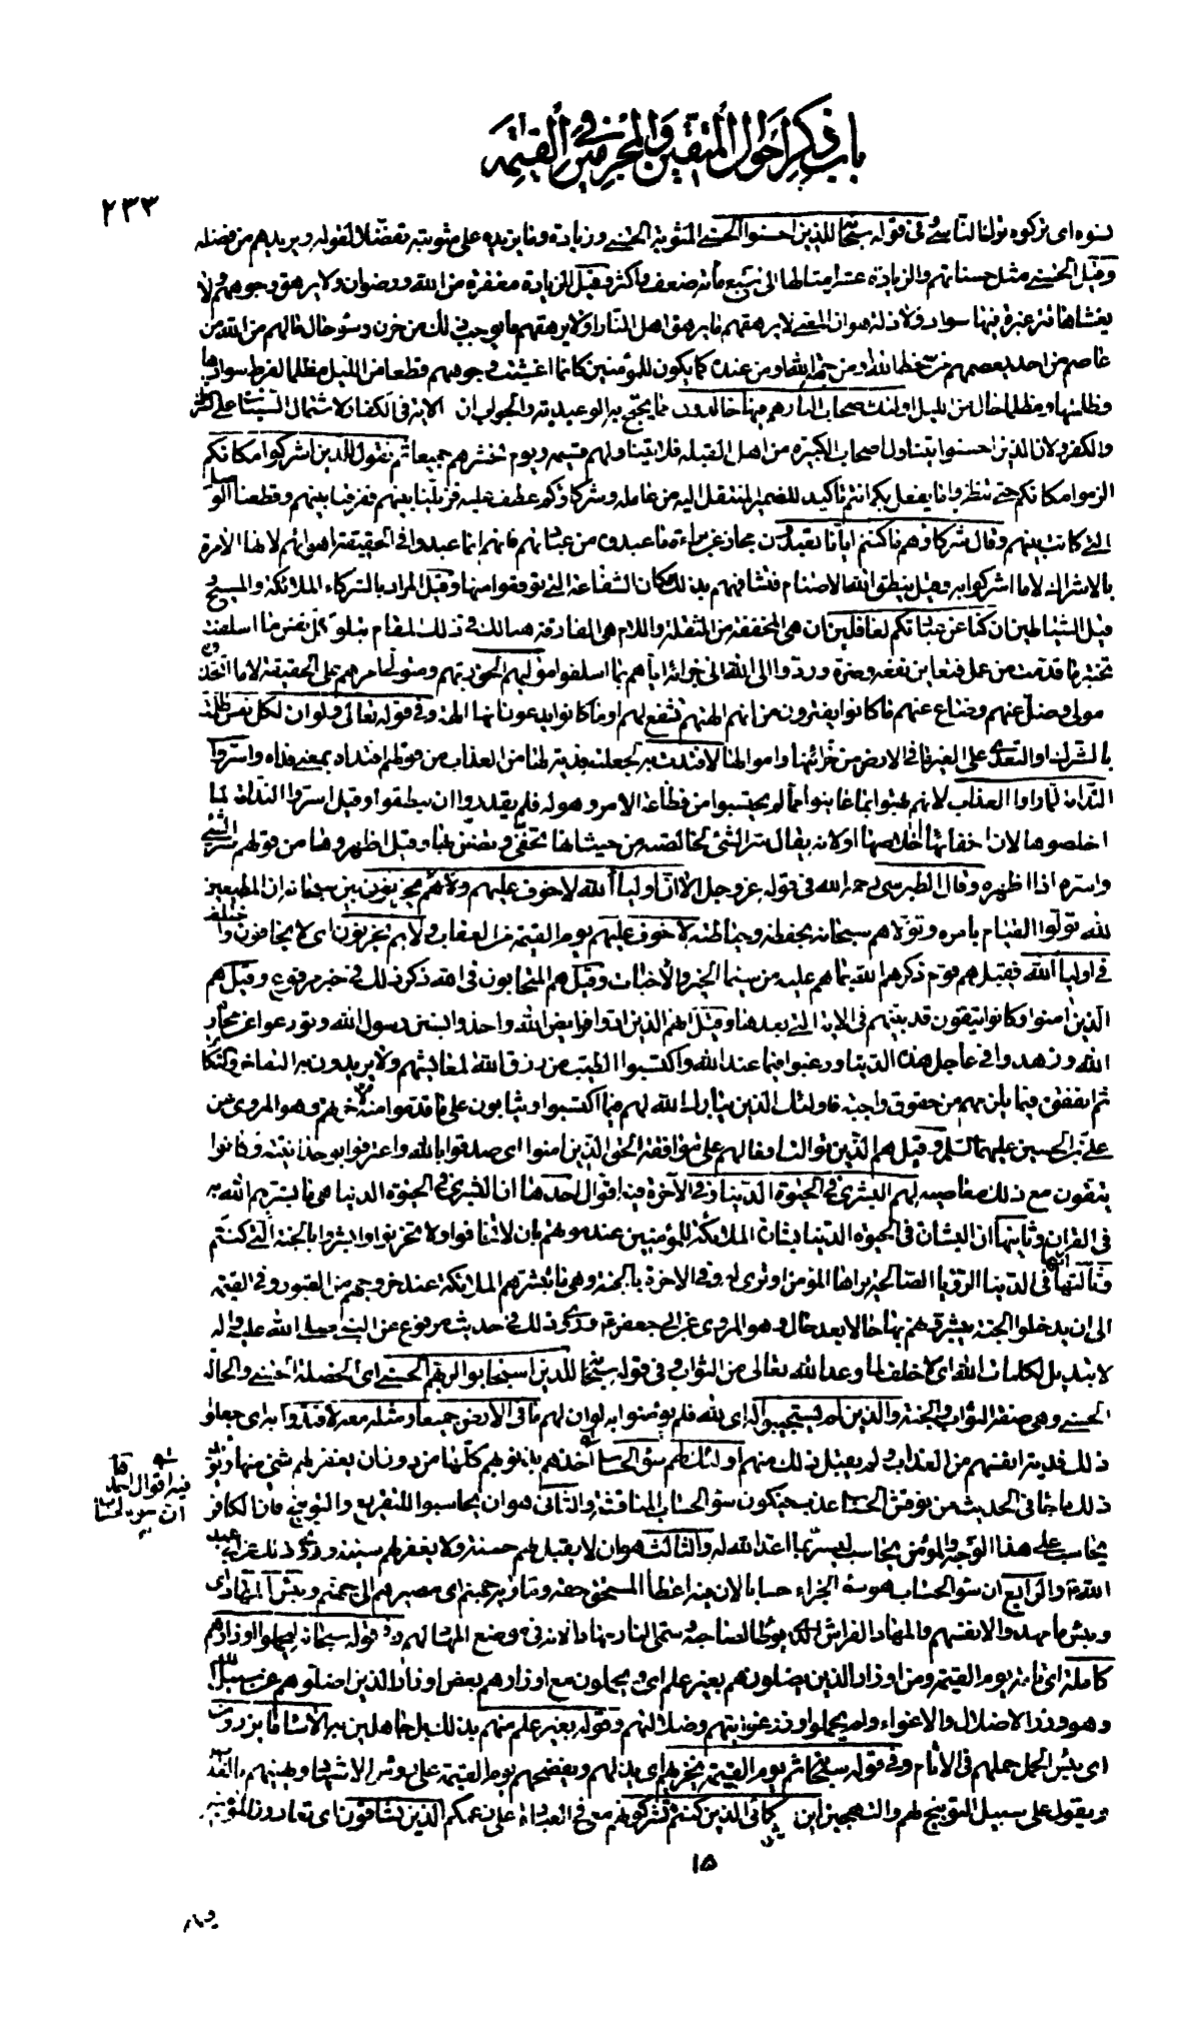 باب ذكر احوال المتقين والمجرمين في القيمة
٢٣٣
نسوه اى تركوه تركنا الناسى وفى قوله سبحانه للذين احسنوا الحسنى المثوبة الحسنى وزيادة وما يزيد على مثوبته تفضلا لقوله ويزيدهم من فضله
وقيل الحسنى مثل حسناتهم والزيادة عشر امثالها الى سبع مائة ضعف واكثر وقيل الزيادة مغفرة من الله ورضوان ولا يرهق وجوههم ولا
يغشاها قتر غبرة فيها سواد ولا ذلة هوان والمعنى لا يرهقهم ما يرهق اهل النار او لا يرهقهم ما يوجب ذلك من حزن وسوء حال ما لهم من الله من
عاصم من احد يعصمهم من سخط الله او من جهة الله ومن عنده كما يكون للمؤمنين كانما اغشيت وجوههم قطعا من الليل مظلما لفرط سوادها
وظلمتها ومظلما حال من الليل اولئك اصحاب النار هم فيها خالدون مما يحتج به الوعيدية والجواب ان الاية فى الكفار لاشتمال السيئات على الكفر
والشرك ولان الذين احسنوا يتناول اصحاب الكبيرة من اهل القبلة فلا يتناولهم قسيمه ويوم نحشرهم جميعا ثم نقول للذين اشركوا مكانكم
الزموا مكانكم حتى تنظروا ما يفعل بكم انتم تاكيد للضمير المنتقل اليه من عامله وشركاؤكم عطف عليه فزيلنا بينهم ففرقنا بينهم وقطعنا الوصل
التى كانت بينهم وقال شركاؤهم ما كنتم ايانا تعبدون مجاز عن براءة ما عبدوه من عبادتهم فانهم انما عبدوا فى الحقيقة اهواءهم لانها الامرة
بالاشراك لا ما اشركوا به وقيل ينطق الله الاصنام فتشافههم بذلك مكان الشفاعة التى توقعوا منها وقيل المراد بالشركاء الملائكة والمسيح
قيل الشياطين ان كنا عن عبادتكم لغافلين ان هى المخففة من المثقلة واللام هى الفارقة هنالك فى ذلك المقام تبلو كل نفس ما اسلفت
تختبر ما قدمت من عمل فتعاين نفعه وضره وردوا الى الله الى جزائه اياهم بما اسلفوا موليهم الحق ربهم ومتولى امرهم على الحقيقة لا ما اتخذوه
مولى وضل عنهم وضاع عنهم ما كانوا يفترون من انهم الهتهم تشفع لهم او ما كانوا يدعون انها الهة وفى قوله تعالى ولو ان لكل نفس ظلمت
بالشرك او التعدى على الغير ما فى الارض من خزائنها واموالها لافتدت به لجعلته فدية لها من العذاب من قولهم افتداه بمعنى فداه واسروا
الندامة لما راوا العذاب لانهم بهتوا بما عاينوا مما لم يحتسبوا من فظاعة الامر وهوله فلم يقدروا ان ينطقوا وقيل اسروا الندامة
اخلصوها لان اخفاءها اخلاصها او لانه يقال سر الشئ لخالصته من حيث انها تخفى ويضن بها وقيل اظهروها من قولهم سر الشئ
واسره اذا اظهره وقال الطبرسى رحمه الله فى قوله عز وجل الا ان اولياء الله لا خوف عليهم ولا هم يحزنون بين سبحانه ان المطيعين
لله تولوا القيام بامره وتولاهم سبحانه بحفظه وحياطته لا خوف عليهم يوم القيمة من العقاب ولا هم يحزنون اى لا يخافون واختلف
فى اولياء الله فقيل هم قوم ذكرهم الله بما هم عليه من سيماء الخير والاخبات وقيل هم المتحابون فى الله ذكر ذلك فى خبر مرفوع وقيل هم
الذين امنوا وكانوا يتقون قد بينهم فى الاية التى بعدها وقيل انهم الذين ادوا فرايض الله واخذوا بسنن رسول الله وتورعوا عن محارم
الله وزهدوا فى عاجل هذه الدنيا ورغبوا فيما عند الله واكتسبوا الطيب من رزق الله لمعايشهم ولا يريدون به التفاخر والتكاثر
ثم انفقوه فيما يلزمهم من حقوق واجبة فاولئك الذين يبارك الله لهم فيما اكتسبوا ويثابون على ما قدموا منه لاخرتهم وهو المروى عن
على بن الحسين عليهما السلم وقيل هم الذين توالت افعالهم على موافقة الحق الذين امنوا اى صدقوا بالله واعترفوا بوحدانيته وكانوا
يتقون مع ذلك معاصيه لهم البشرى فى الحيوة الدنيا وفى الآخرة فيه اقوال احدها ان البشرى فى الحيوة الدنيا هى ما بشرهم الله به
فى القران وثانيها ان البشارة فى الحيوة الدنيا بشارة الملائكة للمؤمنين عند موتهم بان لا تخافوا ولا تحزنوا وابشروا بالجنة التى كنتم
وثالثها انها فى الدنيا الرؤيا الصالحة يراها المؤمن او ترى له وفى الاخرة بالجنة وهى ما تبشرهم الملائكة عند خروجهم من القبور وفى القيمة
الى ان يدخلوا الجنة يبشرونهم بها حالا بعد حال وهو المروى عن ابى جعفر ع وروى ذلك فى حديث مرفوع عن النبى صلى الله عليه واله
لا تبديل لكلمات الله اى لا خلف لما وعد الله تعالى من الثواب وفى قوله سبحانه للذين استجابوا لربهم الحسنى اى الخصلة الحسنى والحالة
الحسنى وهى صفة الثواب والجنة والذين لم يستجيبوا له اى لله فلم يؤمنوا به لو ان لهم ما فى الارض جميعا ومثله معه لافتدوا به اى جعلوا
ذلك فدية انفسهم من العذاب ولم يقبل ذلك منهم اولئك لهم سوء الحساب اخذهم بذنوبهم كلها من دون ان يغفر لهم شئ منها ويؤيد
ذلك ما جاء فى الحديث من نوقش الحساب عذب فيكون سوء الحساب المناقشة والثانى هو ان يحاسبوا للتقريع والتوبيخ فان الكافر
يحاسب على هذا الوجه والمؤمن يحاسب ليسر بما اعد الله له والثالث هو ان لا يقبل لهم حسنة ولا يغفر لهم سيئة وروى ذلك عن ابى عبد
الله ع والرابع ان سوء الحساب هو سوء الجزاء حسابا لان فيه اعطاء المستحق حقه وماويهم جهنم اى مصيرهم الى جهنم وبئس المهاد اى
وبئس ما مهدوا لانفسهم والمهاد الفراش الذى يوطأ لصاحبه وسمى النار مهادا لانه فى موضع المهاد لهم وفى قوله سبحانه ليحملوا اوزارهم
كاملة اى تامة يوم القيمة ومن اوزار الذين يضلونهم بغير علم اى ويحملون مع اوزارهم بعض اوزار الذين اضلوهم عن سبيل الله
وهو وزر الاضلال والاغواء ولم يحملوا وزر غوايتهم وضلالتهم وقوله بغير علم منهم بذلك بل جاهلين به الا ساء ما يزرون
اى بئس الحمل حملهم فى الآثام وفى قوله سبحانه ثم يوم القيمة يخزيهم اى يذلهم ويفضحهم يوم القيمة على رؤس الاشهاد ويهينهم بالعذاب
ويقول على سبيل التوبيخ لهم والتهجين اين شركائى الذين كنتم تشركونهم معى فى العبادة على زعمكم الذين تشاقون اى تعادون المؤمنين
فيه اقوال احدها
ان سوء الحساب
١٥
فيهم